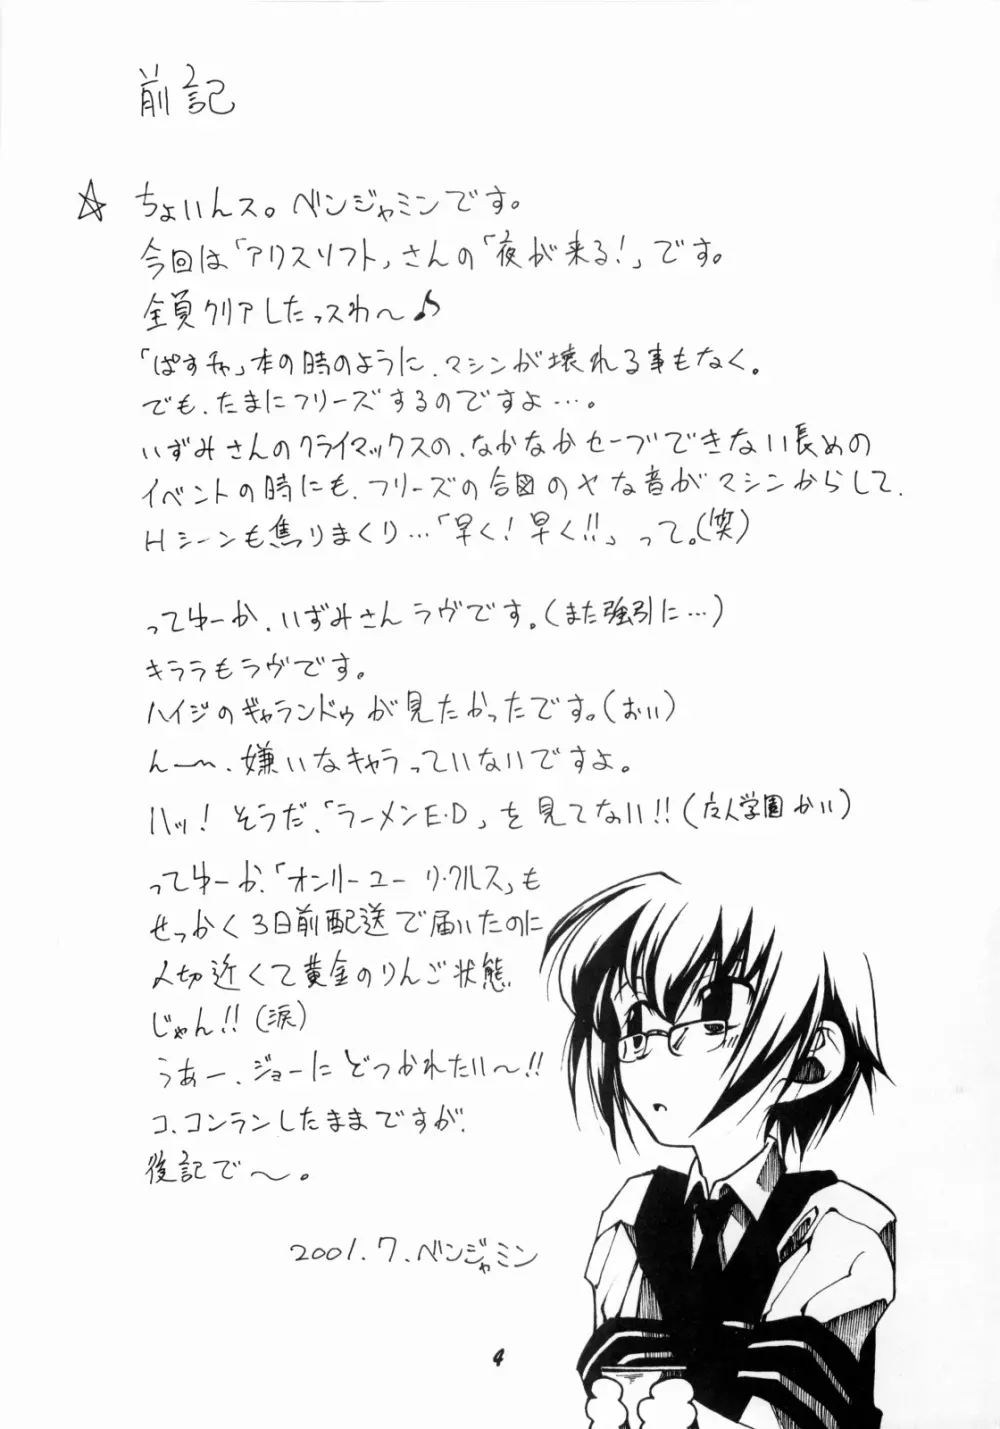 前記
☆ ちょいんス。ベンジャミンです。
今回は「アリスソフト」さんの「夜が来る!」です。
全員クリアしたっスわ〜♪
「ぱすチャ」本の時のように、マシンが壊れる事もなく。
でも、たまにフリーズするのですよ…。
いずみさんのクライマックスの、なかなかセーブできない長めの
イベントの時にも、フリーズの合図のヤな音がマシンからして、
Hシーンも焦りまくり…「早く!早く!!」って。(笑)
ってゆーか、いずみさんラヴです。(また強引に…)
キララもラヴです。
ハイジのギャランドゥが見たかったです。(おい)
んー〜、嫌いなキャラっていないですよ。
ハッ! そうだ、「ラーメンE・D」を見てない!!(広人学園かい)
ってゆーか、「オンリーユー リ・クルス」も
せっかく3日前配送で届いたのに
人切近くて黄金のりんご状態
じゃん!!(涙)
うあー、ジョーにどつかれたい〜!!
コ、コンランしたままですが、
後記で〜。
2001.7.ベンジャミン
4